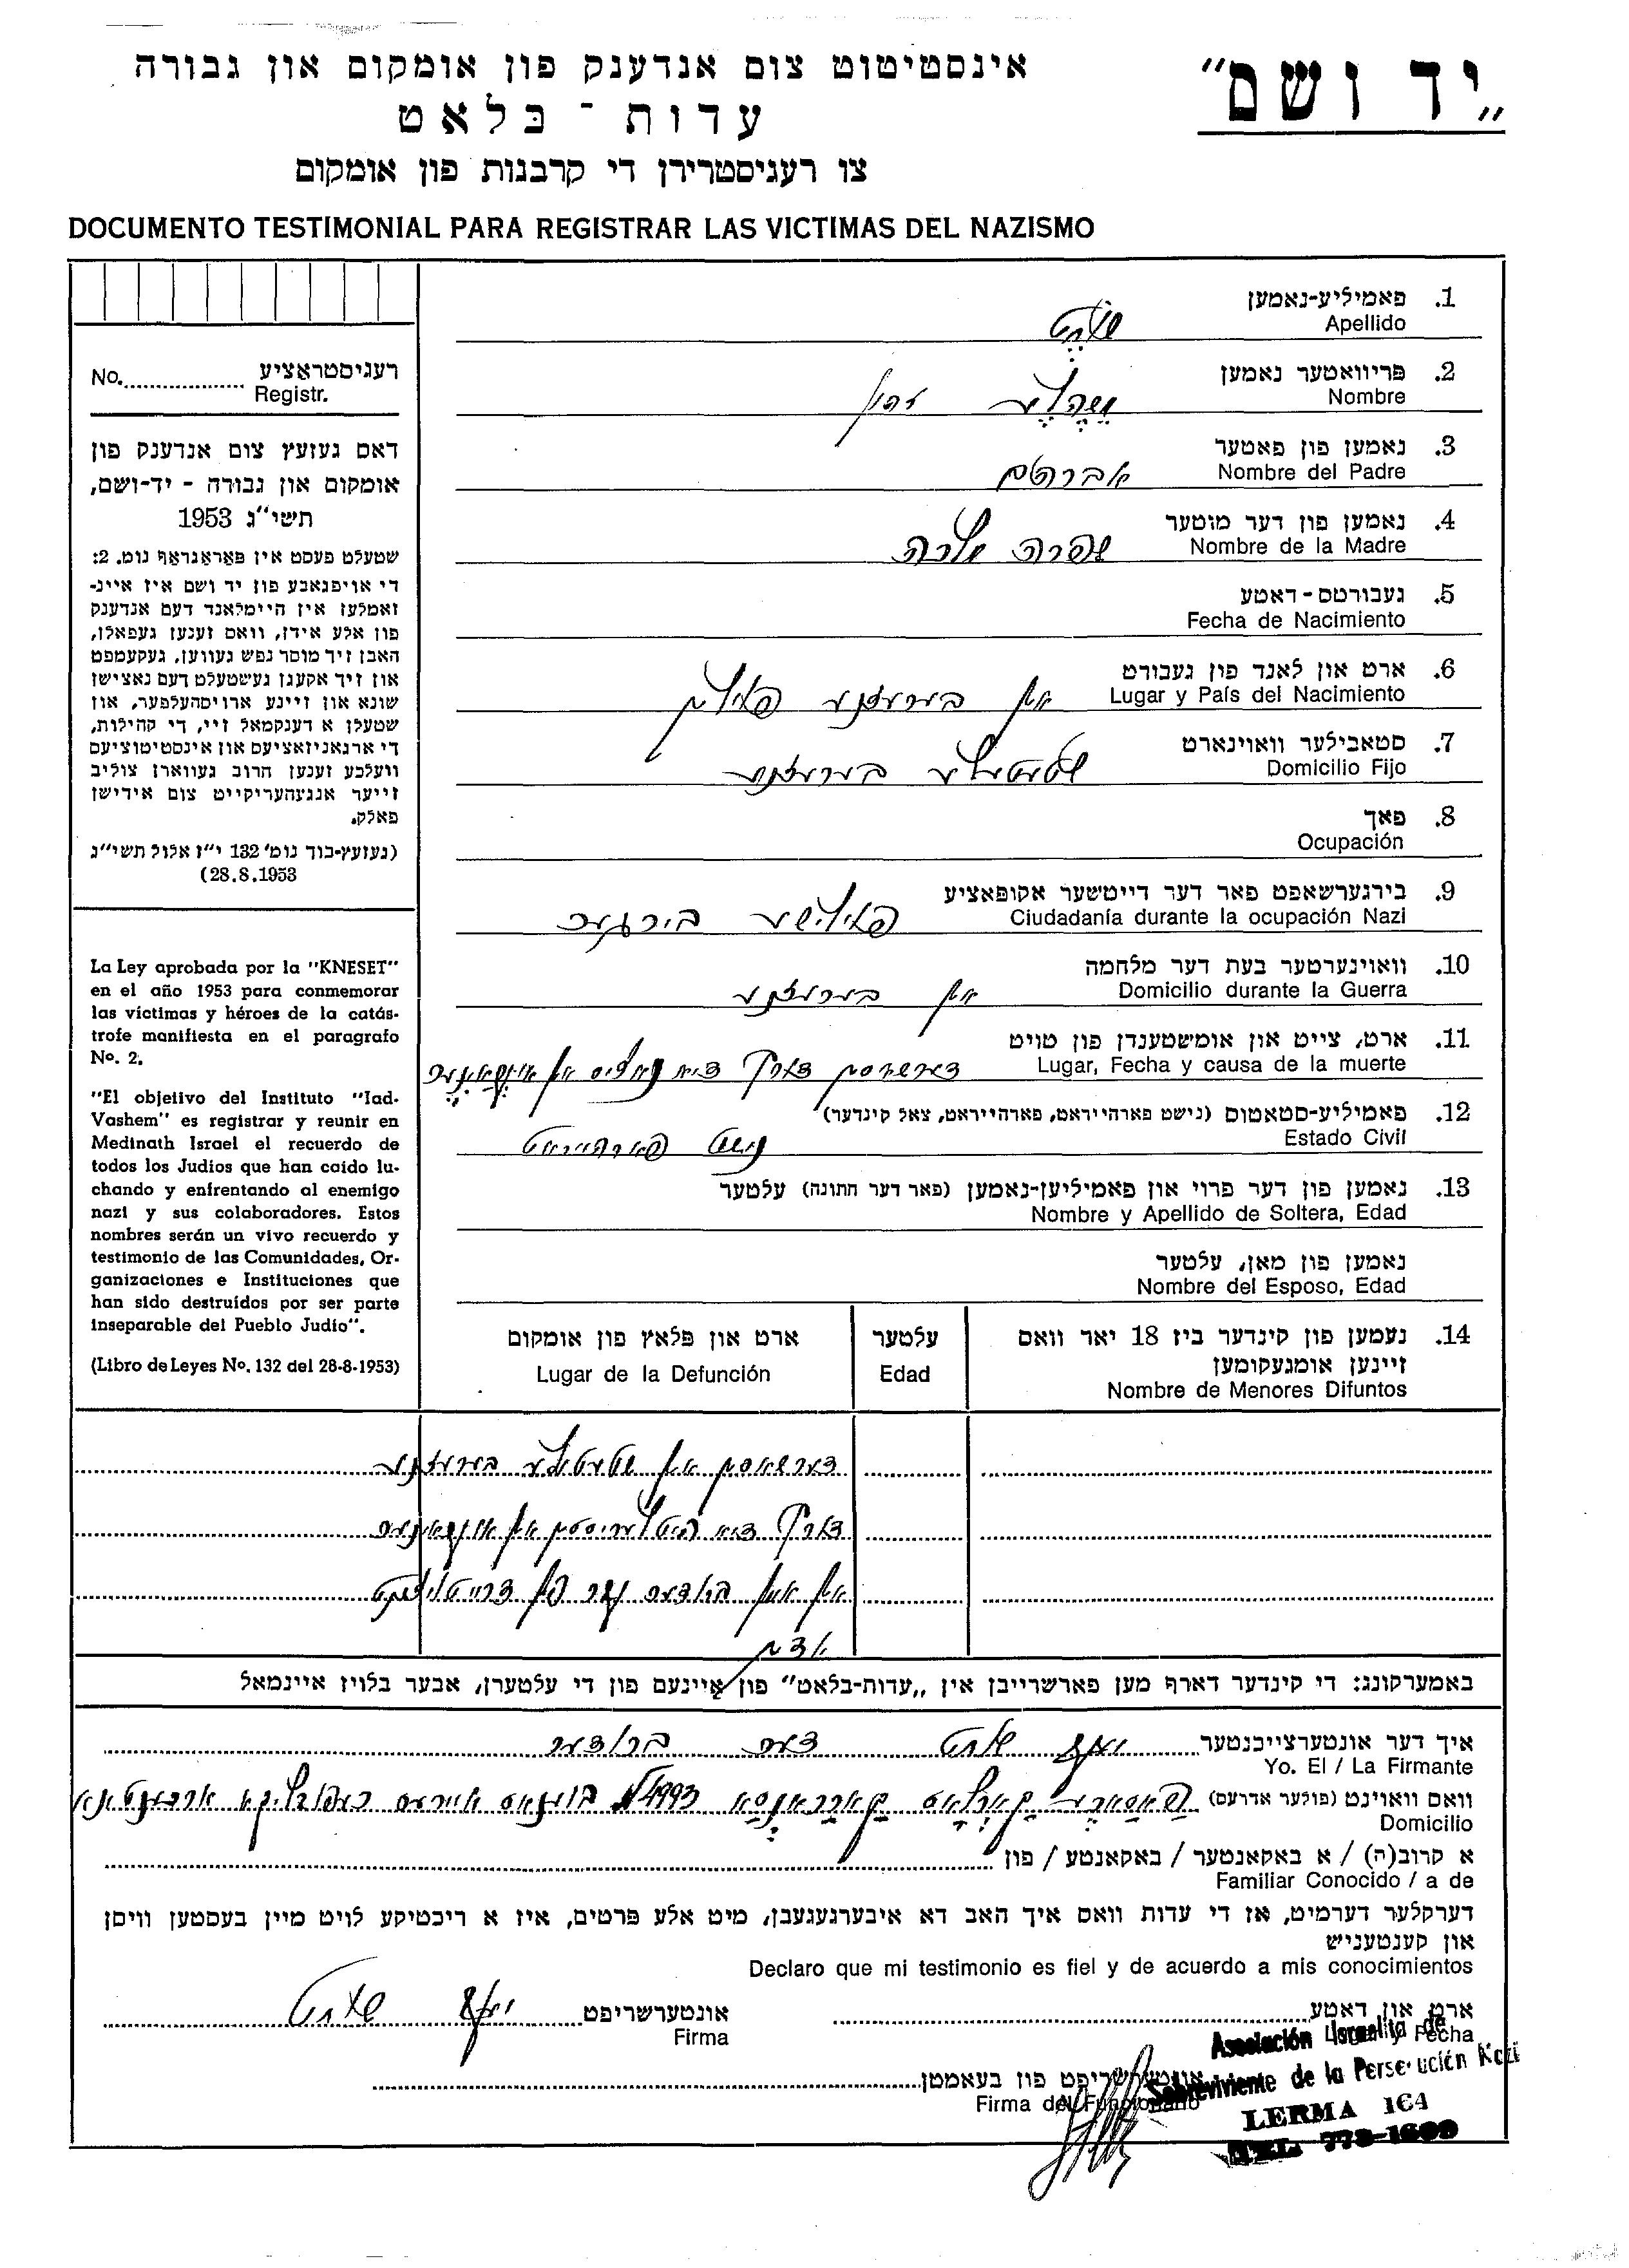 „יד ושם"
אינסטיטוט צום אנדענק פון אומקום און גבורה
עדות - בלאט
צו רעגיסטרירן די קרבנות פון אומקום
DOCUMENTO TESTIMONIAL PARA REGISTRAR LAS VICTIMAS DEL NAZISMO
1. פאמיליע-נאמען
Apellido
2. פריוואטער נאמען
Nombre
3. נאמען פון פאטער
Nombre del Padre אברהם
4. נאמען פון דער מוטער
Nombre de la Madre שרה
5. געבורטס-דאטע
Fecha de Nacimiento
6. ארט און לאנד פון געבורט
Lugar y País del Nacimiento אין בערעזנע פוילין
7. סטאבילער וואוינארט
Domicilio Fijo שטעטעלע בערעזנע
8. פאך
Ocupación
9. בירגערשאפט פאר דער דייטשער אקופאציע
Ciudadanía durante la ocupación Nazi פוילישע בירגער
10. וואוינערטער בעת דער מלחמה
Domicilio durante la Guerra אין בערעזנע
11. ארט, צייט און אומשטענדן פון טויט
Lugar, Fecha y causa de la muerte דערשאסן דורך דיא נאציס אין
12. פאמיליע-סטאטוס (נישט פארהייראט, פארהייראט, צאל קינדער)
Estado Civil נישט פארהייראט
13. נאמען פון דער פרוי און פאמיליען-נאמען (פאר דער חתונה) עלטער
Nombre y Apellido de Soltera, Edad
נאמען פון מאן, עלטער
Nombre del Esposo, Edad
14. נעמען פון קינדער ביז 18 יאר וואס
זיינען אומגעקומען
Nombre de Menores Difuntos
עלטער
Edad
ארט און פלאץ פון אומקום
Lugar de la Defunción
דערשאסן אין שטעטעלע בערעזנע
דורך דיא היטלעריסטן אין
אין איין ברודער
No. רעגיסטראציע
Registr.
דאס געזעץ צום אנדענק פון
אומקום און גבורה - יד-ושם,
תשי"ג 1953
שטעלט פעסט אין פאראגראף נומ. 2:
די אויפגאבע פון יד ושם איז איינ-
זאמלען אין היימלאנד דעם אנדענק
פון אלע אידן, וואס זענען געפאלן,
האבן זיך מוסר נפש געווען, געקעמפט
און זיך אקעגן געשטעלט דעם נאצישן
שונא און זיינע ארויסהעלפער, און
שטעלן א דענקמאל זיי, די קהילות,
די ארגאניזאציעס און אינסטיטוציעס
וועלכע זענען חרוב געווארן צוליב
זייער אנגעהעריקייט צום אידישן
פאלק.
(געזעץ-בוך נומ' 132 י"ז אלול תשי"ג
(28.8.1953
La Ley aprobada por la "KNESET"
en el año 1953 para conmemorar
las víctimas y héroes de la catás-
trofe manifiesta en el paragrafo
Nº. 2.
"El objetivo del Instituto "Iad-
Vashem" es registrar y reunir en
Medinath Israel el recuerdo de
todos los Judíos que han caído lu-
chando y enfrentando al enemigo
nazi y sus colaboradores. Estos
nombres serán un vivo recuerdo y
testimonio de las Comunidades, Or-
ganizaciones e Instituciones que
han sido destruídos por ser parte
inseparable del Pueblo Judío".
(Libro de Leyes Nº. 132 del 28-8-1953)
באמערקונג: די קינדער דארף מען פארשרייבן אין „עדות-בלאט" פון איינעם פון די עלטערן, אבער בלויז איינמאל
איך דער אונטערצייכנטער דער ברודער
Yo. El / La Firmante
וואס וואוינט (פולער אדרעס) 4993 בוענאס איירעס רעפובליקא ארגענטינא
Domicilio
א קרוב(ה) / א באקאנטער / באקאנטע / פון
Familiar Conocido / a de
דערקלער דערמיט, אז די עדות וואס איך האב דא איבערגעגעבן, מיט אלע פרטים, איז א ריכטיקע לויט מיין בעסטען וויסן
און קענטעניש
Declaro que mi testimonio es fiel y de acuerdo a mis conocimientos
ארט און דאטע
Lugar y Fecha
אונטערשריפט
Firma
אונטערשריפט פון בעאמטן
Firma del Funcionario
Asociación Israelita de
Sobreviviente de la Persecución Nazi
LERMA 164
TEL. 773-1699